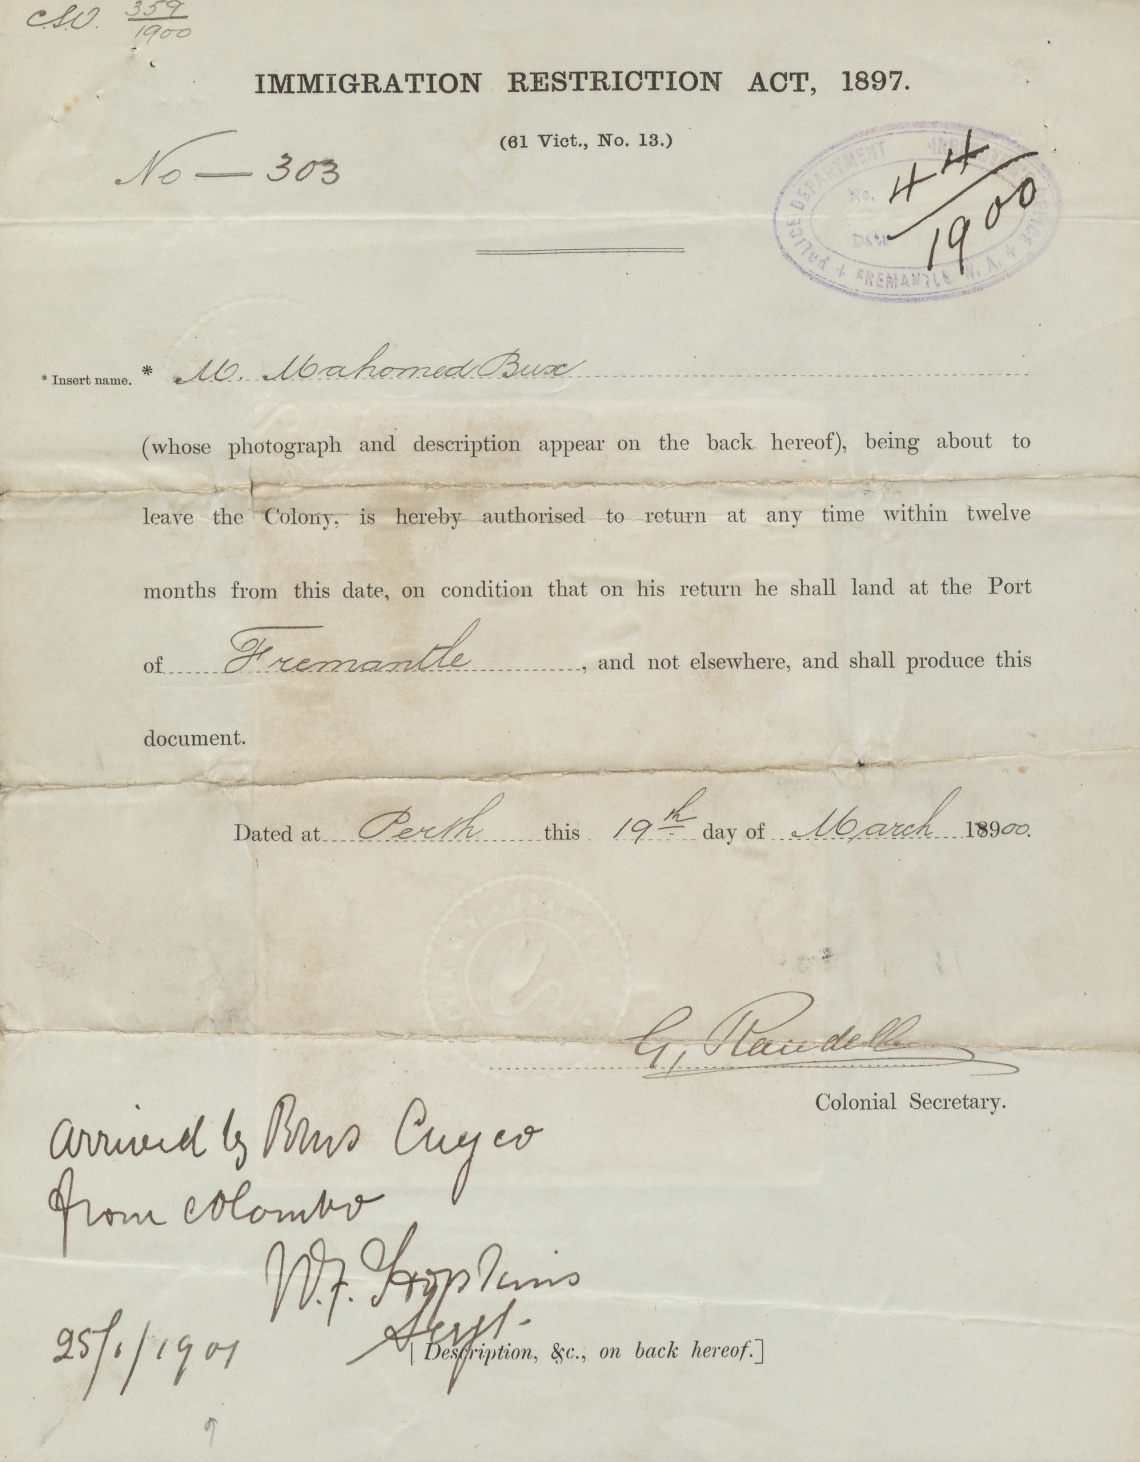 C.S.O. 359/1900
IMMIGRATION RESTRICTION ACT, 1897.
(61 Vict., No. 13.)
No — 303
POLICE DEPARTMENT
No. 44/1900
Date
FREMANTLE W. A.
* Insert name. * M. Mahomed Bux
(whose photograph and description appear on the back hereof), being about to
leave the Colony, is hereby authorised to return at any time within twelve
months from this date, on condition that on his return he shall land at the Port
of Fremantle, and not elsewhere, and shall produce this
document.
Dated at Perth this 19th day of March 18900.
G. Randell
Colonial Secretary.
Arrived by RMS Cuzco
from Colombo
W.F. Hopkins
Sergt.
25/1/1901
[Description, &c., on back hereof.]